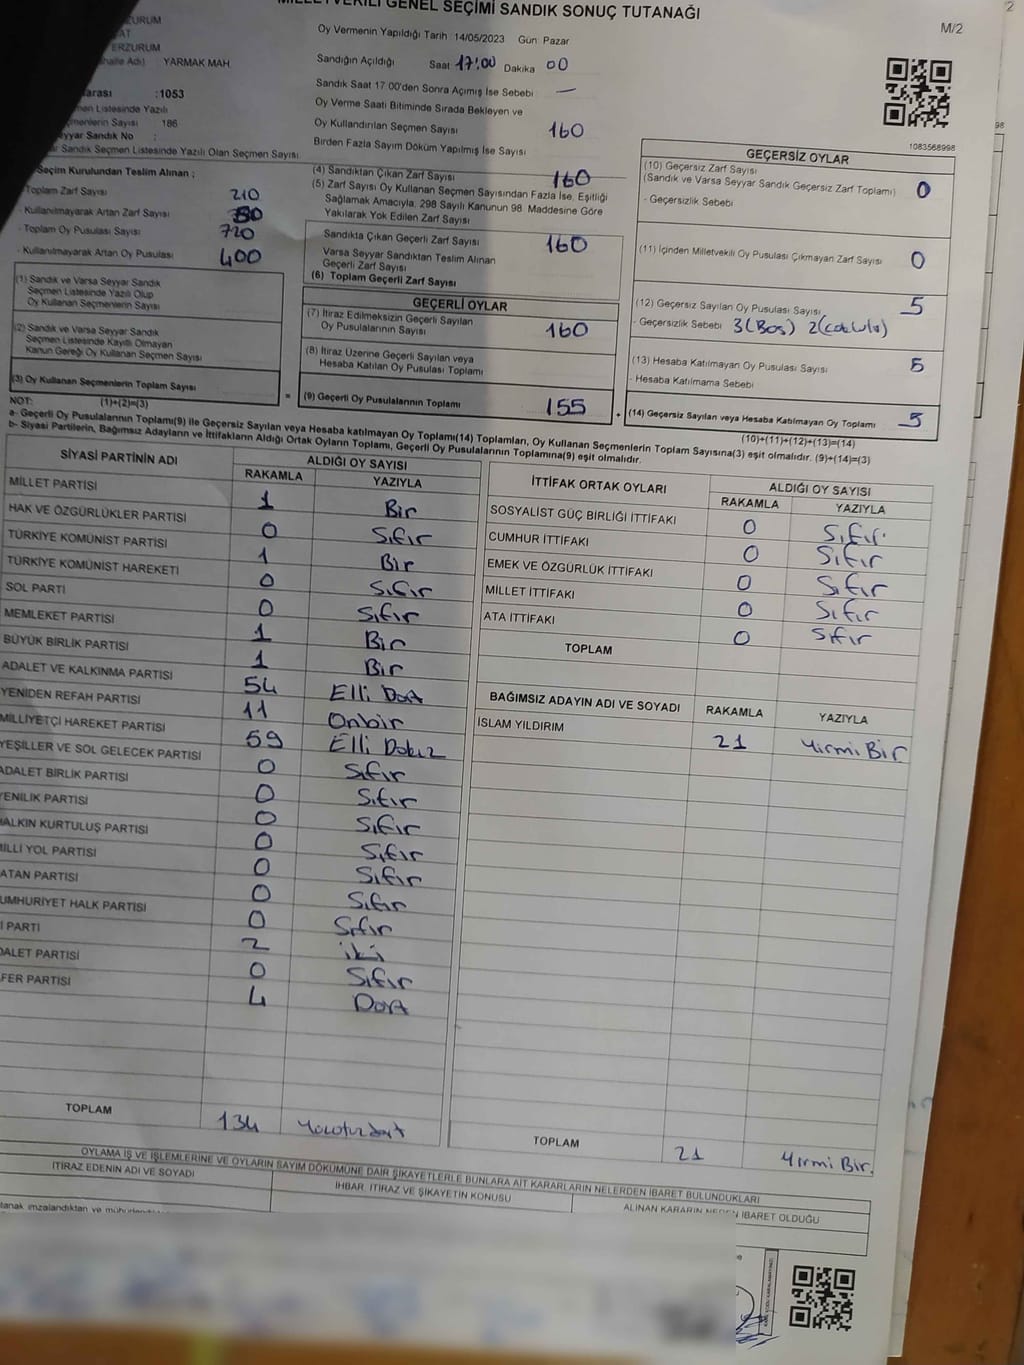 MİLLETVEKİLİ GENEL SEÇİMİ SANDIK SONUÇ TUTANAĞI
M/2
ERZURUM
YARMAK MAH
:1053
186
Seyyar Sandık No :
Sandık Seçmen Listesinde Yazılı Olan Seçmen Sayısı:
Oy Vermenin Yapıldığı Tarih :14/05/2023 Gün: Pazar
Sandığın Açıldığı Saat 17:00 Dakika 00
Sandık Saat 17:00'den Sonra Açımış İse Sebebi —
Oy Verme Saati Bitiminde Sırada Bekleyen ve
Oy Kullandırılan Seçmen Sayısı 160
Birden Fazla Sayım Döküm Yapılmış İse Sayısı
1083568998
Seçim Kurulundan Teslim Alınan ;
Toplam Zarf Sayısı 210
- Kullanılmayarak Artan Zarf Sayısı
- Toplam Oy Pusulası Sayısı 720
- Kullanılmayarak Artan Oy Pusulası 400
(1) Sandık ve Varsa Seyyar Sandık
Seçmen Listesinde Yazılı Olup
Oy Kullanan Seçmenlerin Sayısı
(2) Sandık ve Varsa Seyyar Sandık
Seçmen Listesinde Kayıtlı Olmayan
Kanun Gereği Oy Kullanan Seçmen Sayısı
(3) Oy Kullanan Seçmenlerin Toplam Sayısı
(4) Sandıktan Çıkan Zarf Sayısı 160
(5) Zarf Sayısı Oy Kullanan Seçmen Sayısından Fazla İse, Eşitliği
Sağlamak Amacıyla, 298 Sayılı Kanunun 98. Maddesine Göre
Yakılarak Yok Edilen Zarf Sayısı
Sandıkta Çıkan Geçerli Zarf Sayısı 160
Varsa Seyyar Sandıktan Teslim Alınan
Geçerli Zarf Sayısı
(6) Toplam Geçerli Zarf Sayısı
GEÇERLİ OYLAR
(7) İtiraz Edilmeksizin Geçerli Sayılan
Oy Pusulalarının Sayısı 160
(8) İtiraz Üzerine Geçerli Sayılan veya
Hesaba Katılan Oy Pusulası Toplamı
= (9) Geçerli Oy Pusulalarının Toplamı 155 +
GEÇERSİZ OYLAR
(10) Geçersiz Zarf Sayısı
(Sandık ve Varsa Seyyar Sandık Geçersiz Zarf Toplamı) 0
- Geçersizlik Sebebi
(11) İçinden Milletvekili Oy Pusulası Çıkmayan Zarf Sayısı 0
(12) Geçersiz Sayılan Oy Pusulası Sayısı 5
- Geçersizlik Sebebi 3(Boş)
(13) Hesaba Katılmayan Oy Pusulası Sayısı 5
- Hesaba Katılmama Sebebi
(14) Geçersiz Sayılan veya Hesaba Katılmayan Oy Toplamı 5
NOT: (1)+(2)=(3)
(10)+(11)+(12)+(13)=(14)
a- Geçerli Oy Pusulalarının Toplamı(9) ile Geçersiz Sayılan veya Hesaba katılmayan Oy Toplamı(14) Toplamları, Oy Kullanan Seçmenlerin Toplam Sayısına(3) eşit olmalıdır. (9)+(14)=(3)
b- Siyasi Partilerin, Bağımsız Adayların ve İttifakların Aldığı Ortak Oyların Toplamı, Geçerli Oy Pusulalarının Toplamına(9) eşit olmalıdır.
SİYASİ PARTİNİN ADI ALDIĞI OY SAYISI
RAKAMLA YAZIYLA
MİLLET PARTİSİ 1 Bir
HAK VE ÖZGÜRLÜKLER PARTİSİ 0 Sıfır
TÜRKİYE KOMÜNİST PARTİSİ 1 Bir
TÜRKİYE KOMÜNİST HAREKETİ 0 Sıfır
SOL PARTİ 0 Sıfır
MEMLEKET PARTİSİ 1 Bir
BÜYÜK BİRLİK PARTİSİ 1 Bir
ADALET VE KALKINMA PARTİSİ 54 Elli Dört
YENİDEN REFAH PARTİSİ 11 Onbir
MİLLİYETÇİ HAREKET PARTİSİ 59 Elli Dokuz
YEŞİLLER VE SOL GELECEK PARTİSİ 0 Sıfır
ADALET BİRLİK PARTİSİ 0 Sıfır
YENİLİK PARTİSİ 0 Sıfır
HALKIN KURTULUŞ PARTİSİ 0 Sıfır
MİLLİ YOL PARTİSİ 0 Sıfır
VATAN PARTİSİ 0 Sıfır
CUMHURİYET HALK PARTİSİ 0 Sıfır
İ PARTİ 2 iki
ADALET PARTİSİ 0 Sıfır
ZAFER PARTİSİ 4 Dört
TOPLAM 134
İTTİFAK ORTAK OYLARI ALDIĞI OY SAYISI
RAKAMLA YAZIYLA
SOSYALİST GÜÇ BİRLİĞİ İTTİFAKI 0 Sıfır
CUMHUR İTTİFAKI 0 Sıfır
EMEK VE ÖZGÜRLÜK İTTİFAKI 0 Sıfır
MİLLET İTTİFAKI 0 Sıfır
ATA İTTİFAKI 0 Sıfır
TOPLAM
BAĞIMSIZ ADAYIN ADI VE SOYADI RAKAMLA YAZIYLA
İSLAM YILDIRIM 21 Yirmi Bir
TOPLAM 21 Yirmi Bir.
OYLAMA İŞ VE İŞLEMLERİNE VE OYLARIN SAYIM DÖKÜMÜNE DAİR ŞİKAYETLERLE BUNLARA AİT KARARLARIN NELERDEN İBARET BULUNDUKLARI
İTİRAZ EDENİN ADI VE SOYADI İHBAR, İTİRAZ VE ŞİKAYETİN KONUSU ALINAN KARARIN NEDEN İBARET OLDUĞU